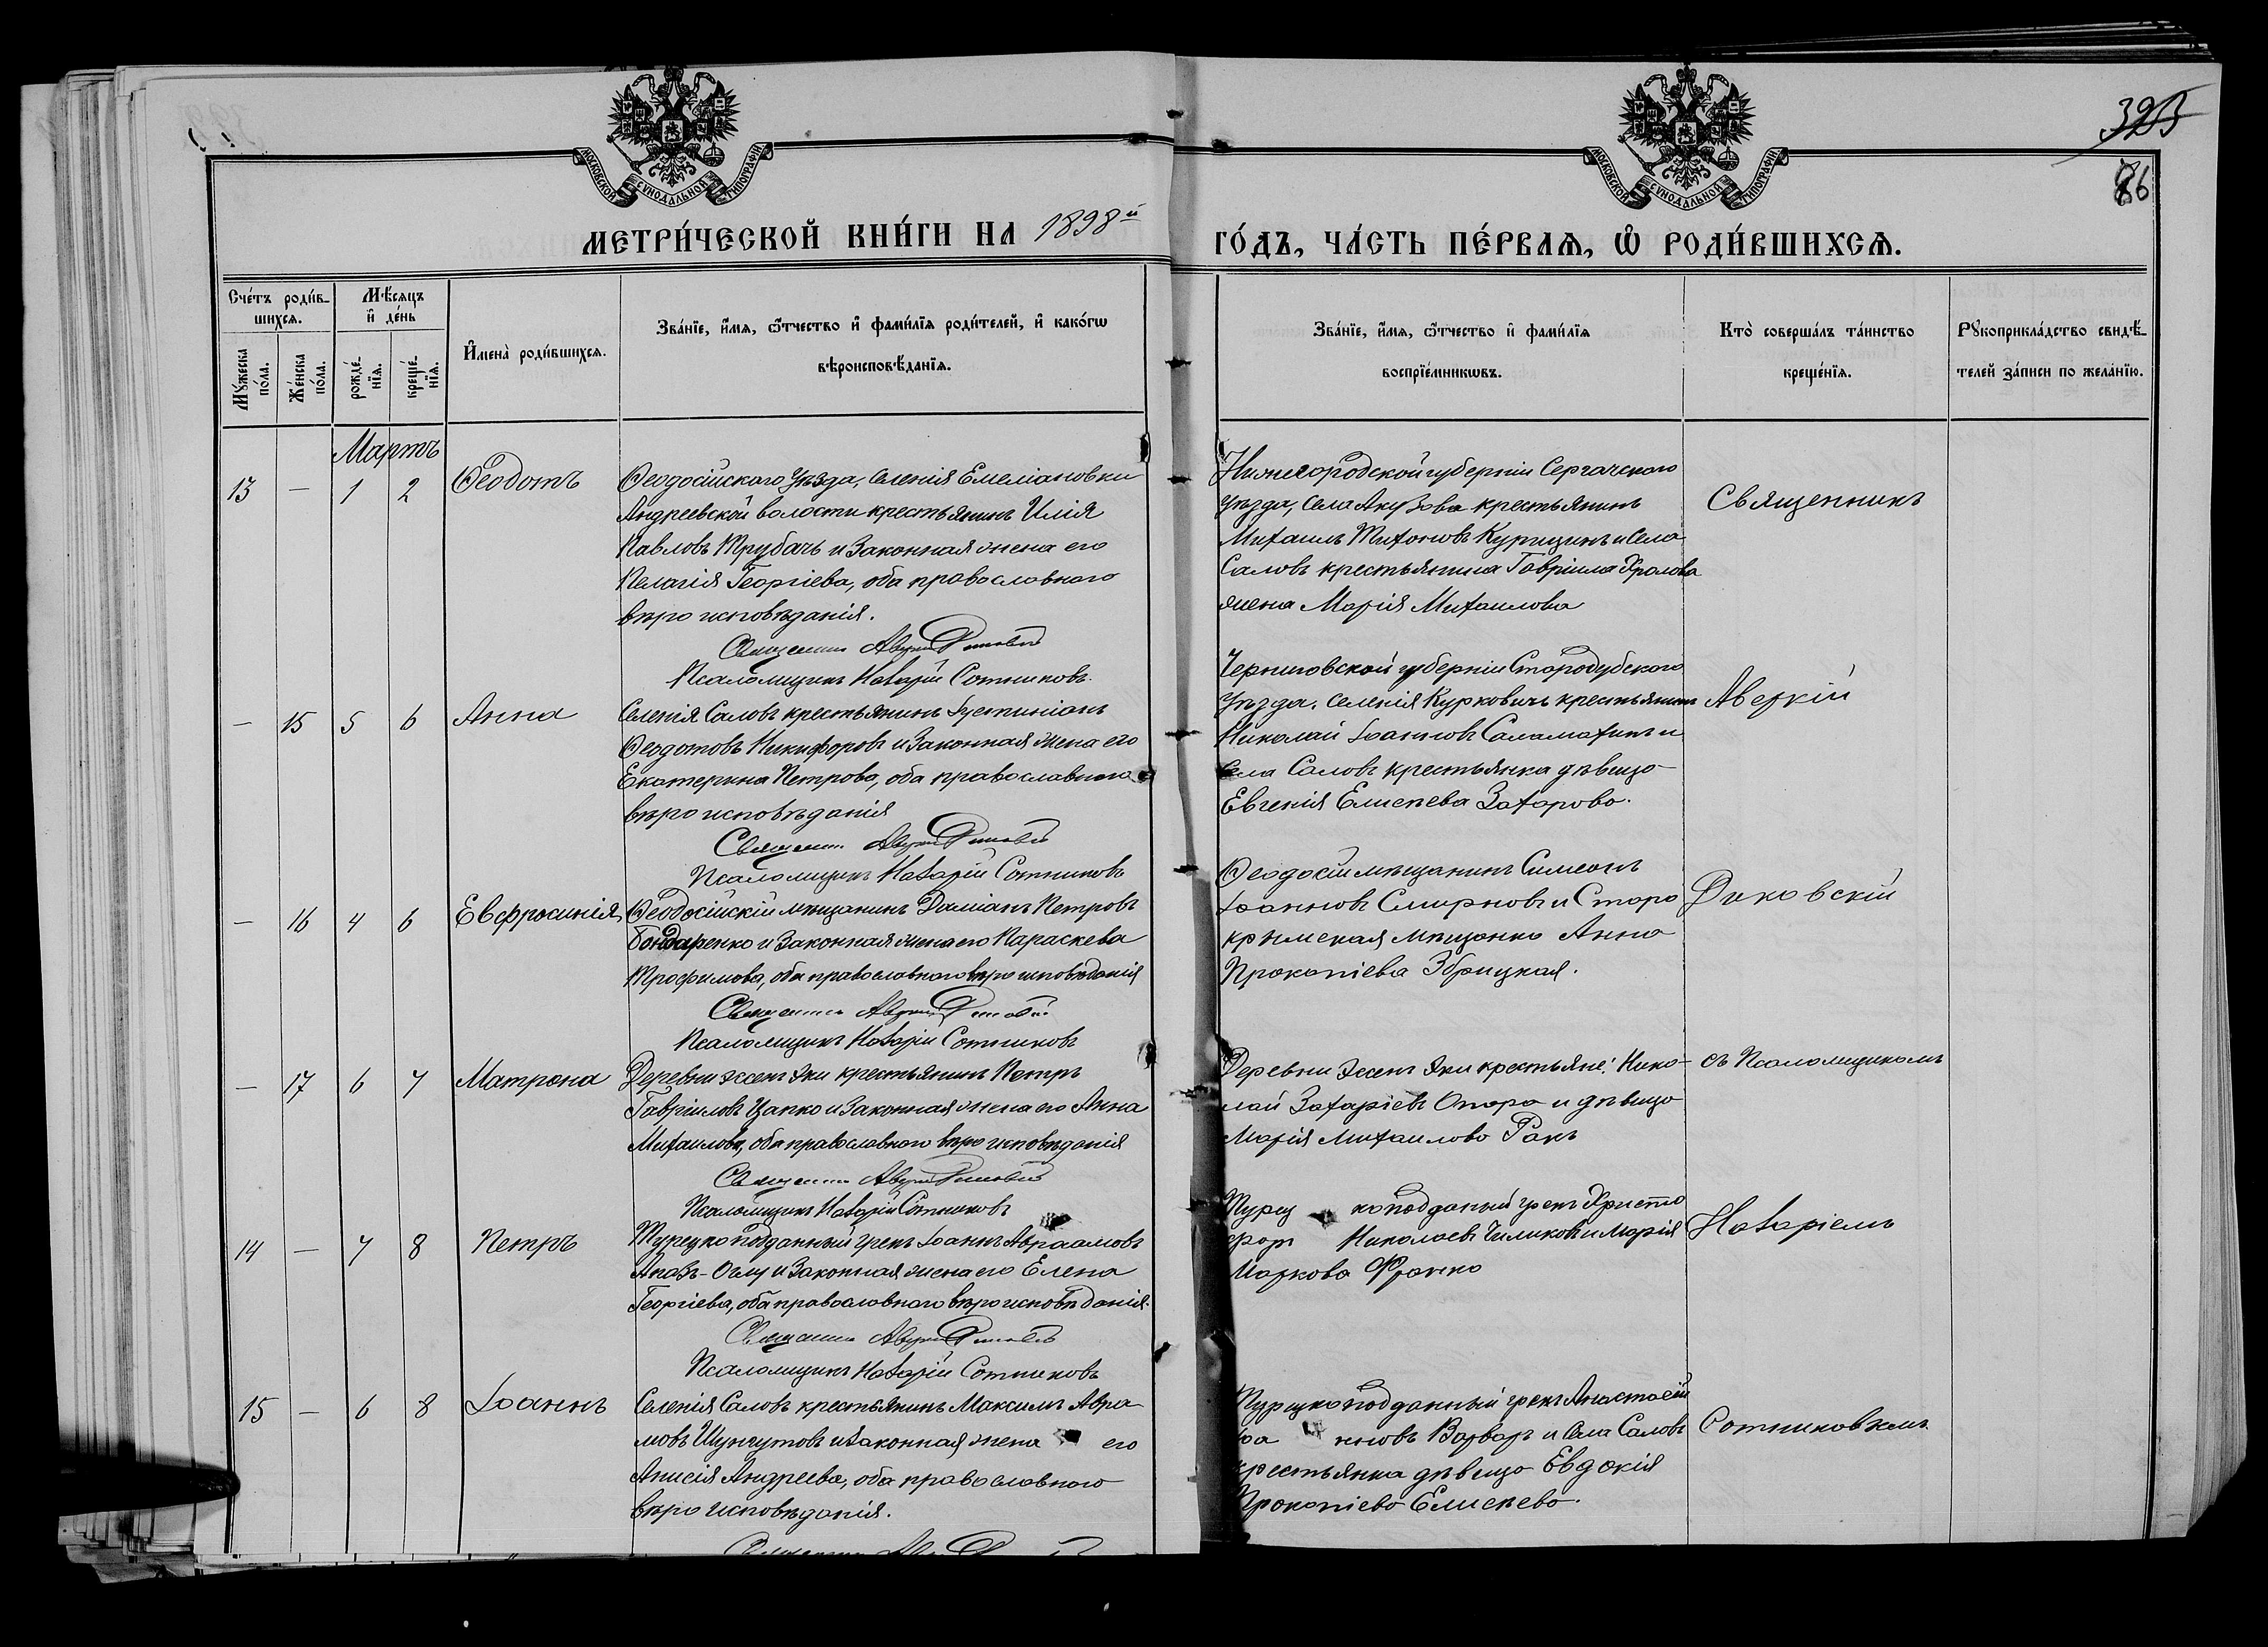 323
86
МОСКОВСКОЙ СѴНОДАЛЬНОЙ ТИПОГРАФІИ
МОСКОВСКОЙ СѴНОДАЛЬНОЙ ТИПОГРАФІИ
МЕТРИ́ЧЕСКОЙ КНИ́ГИ НА 1898й ГО́ДЪ, ЧА́СТЬ ПЕ́РВАѦ, Ѡ҆ РОДИ́ВШИХСѦ.
Сче́тъ роди́в-
шихсѧ.
Мꙋ́жеска по́ла.
Же́нска по́ла.
Мѣ́сѧцъ и҆ де́нь
рожде́-нїѧ.
креще́-нїѧ.
И҆мена̀ роди́вшихсѧ.
Зва́нїе, и҆́мѧ, ѻ҆́тчество и҆ фами́лїѧ роди́телей, и҆ како́гѡ
вѣроисповѣ́данїѧ.
Зва́нїе, и҆́мѧ, ѻ҆́тчество и҆ фами́лїѧ
воспрїе́мникѡвъ.
Кто̀ соверша́лъ та́инство
креще́нїѧ.
Рꙋкоприкла́дство свидѣ́-
телей за́писи по жела́нїю.
Мартъ
13 — 1 2 Ѳеодотъ
Ѳеодосійскаго Уѣзда, селенія Емеліановки
Андреевской волости крестьянинъ Илія
Павловъ Трубачъ и законная жена его
Пелагія Георгіева, оба православнаго
вѣроисповѣданія.
Священникъ Аверкій Диковскій
Псаломщикъ Назарій Сотниковъ.
Нижегородской губерніи Сергачскаго
Уѣзда, села Акузова крестьянинъ
Михаилъ Тихоновъ Курицинъ и Села
Саловъ крестьянина Гавріила Фролова
жена Марія Михаилова
Священникъ
— 15 5 6 Анна
Селенія Саловъ крестьянинъ Іустиніанъ
Ѳеодотовъ Никифоровъ и законная жена его
Екатерина Петрова, оба православнаго
вѣроисповѣданія
Священникъ Аверкій Диковскій
Псаломщикъ Назарій Сотниковъ
Черниговской губерніи Стародубскаго
Уѣзда, селенія Курковичъ крестьянинъ
Николай Іоанновъ Саламахинъ и
Села Саловъ крестьянка дѣвица
Евгенія Елисеева Захарова.
Аверкій
— 16 4 6 Евфросинія
Ѳеодосійскій мѣщанинъ Даміанъ Петровъ
Бондаренко и законная жена его Параскева
Трофимова, оба православнаго вѣроисповѣданія
Священникъ Аверкій Диковскій
Псаломщикъ Назарій Сотниковъ
Ѳеодосій мѣщанинъ Симеонъ
Іоанновъ Смирновъ и Старо
крымская мѣщанка Анна
Прокопіева Збрицкая.
Диковскій
— 17 6 7 Матрона
Деревни Эссенъ Эки крестьянинъ Петръ
Гавріиловъ Цапко и законная жена его Анна
Михаилова, оба православнаго вѣроисповѣданія
Священникъ Аверкій Диковскій
Псаломщикъ Назарій Сотниковъ
Деревни Эссенъ Эки крестьяне: Нико-
лай Захаріевъ Опара и дѣвица
Марія Михаилова Ракъ
съ Псаломщикомъ
14 — 7 8 Петръ
Турецкоподданный грекъ Іоаннъ Авраамовъ
Аповъ-Оглу и законная жена его Елена
Георгіева, оба православнаго вѣроисповѣданія.
Священникъ Аверкій Диковскій
Псаломщикъ Назарій Сотниковъ
Турец коподданый грекъ Христо
форъ Николаевъ Чиликовъ и Марія
Маркова Франко
Назаріемъ
15 — 6 8 Іоаннъ
Селенія Саловъ крестьянинъ Максимъ Авра-
мовъ Шунгутовъ и законная жена его
Анисія Андреева, оба православнаго
вѣроисповѣданія.
Турецкоподданный грекъ Анастасій
Іоа нновъ Варваръ и Села Саловъ
крестьянка дѣвица Евдокія
Прокопіева Елисеева.
Сотниковымъ